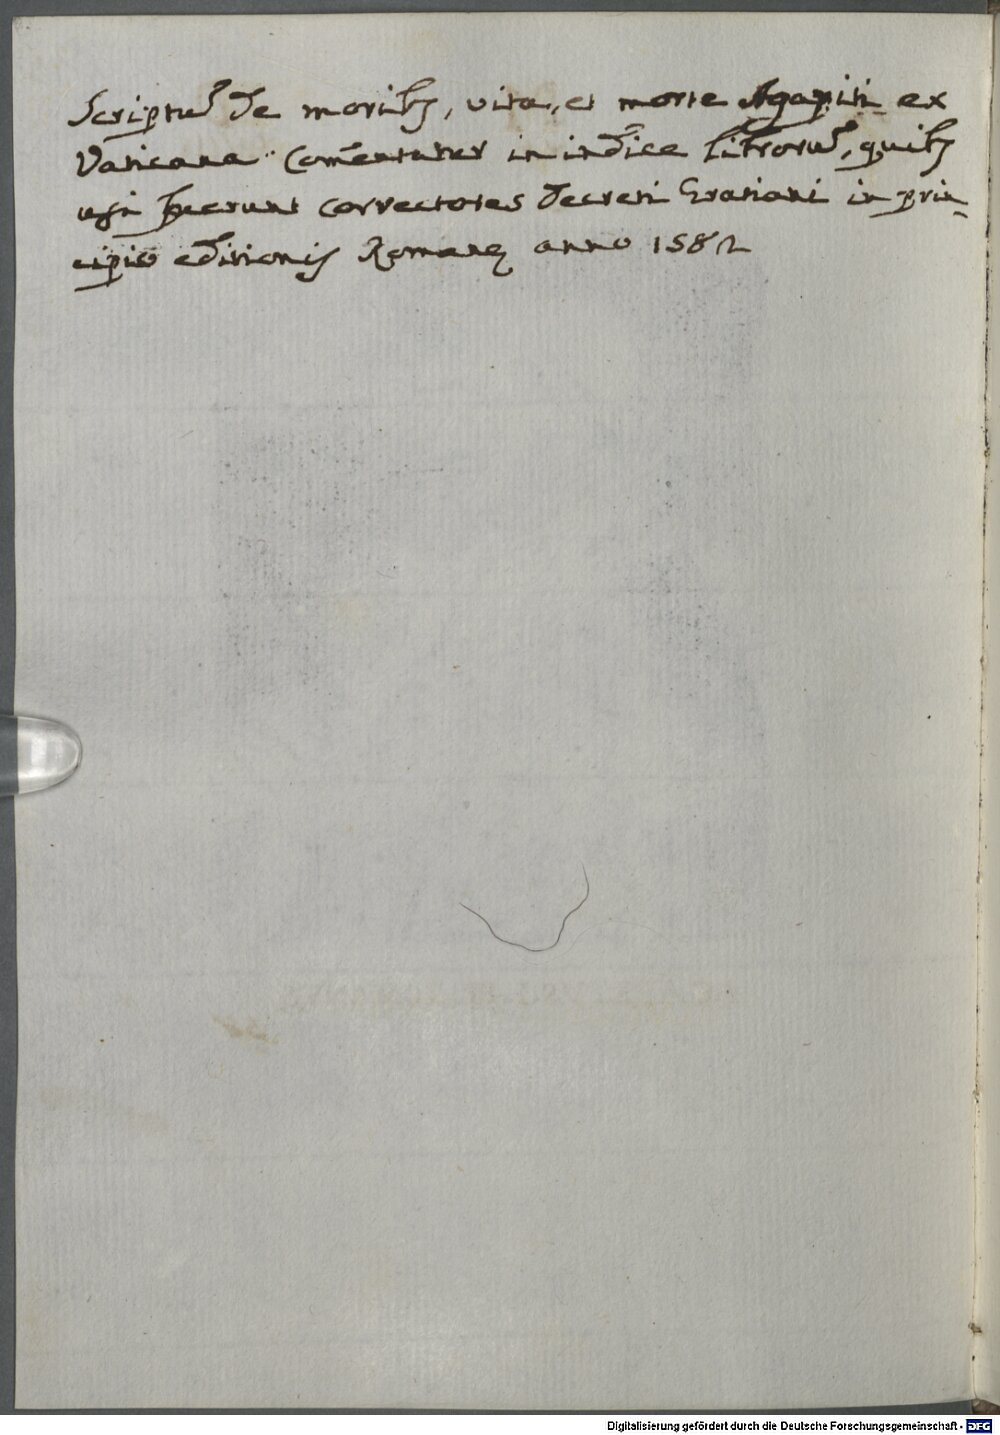 Scriptū de moribꝫ, vita, et morte Agapiti ex
Vaticana. Com̄entatur in indice librorū, quibꝫ
usi fuerunt correctores Decreti Gratiani in prin-
cipio editionis Romanę anno 1582
Digitalisierung gefördert durch die Deutsche Forschungsgemeinschaft - DFG